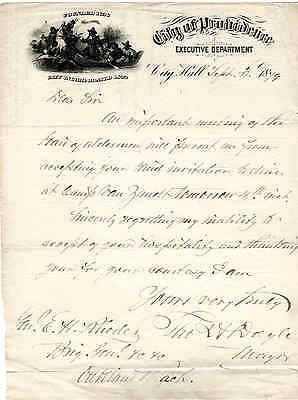 FOUNDED 1636
City of Providence
EXECUTIVE DEPARTMENT
City Hall Sept. 3, 1879
Dear Sir
An important meeting of the
Board of Aldermen will prevent me from
accepting your kind invitation to dine
at Camp Van Zandt tomorrow 4th inst.
Sincerely regretting my inability to
accept of your hospitality and thanking
you for your courtesy I am
Yours very truly
Thos A Doyle
Mayor
E. H. Rhodes
Brig. Genl. &c &c
Oakland Beach.